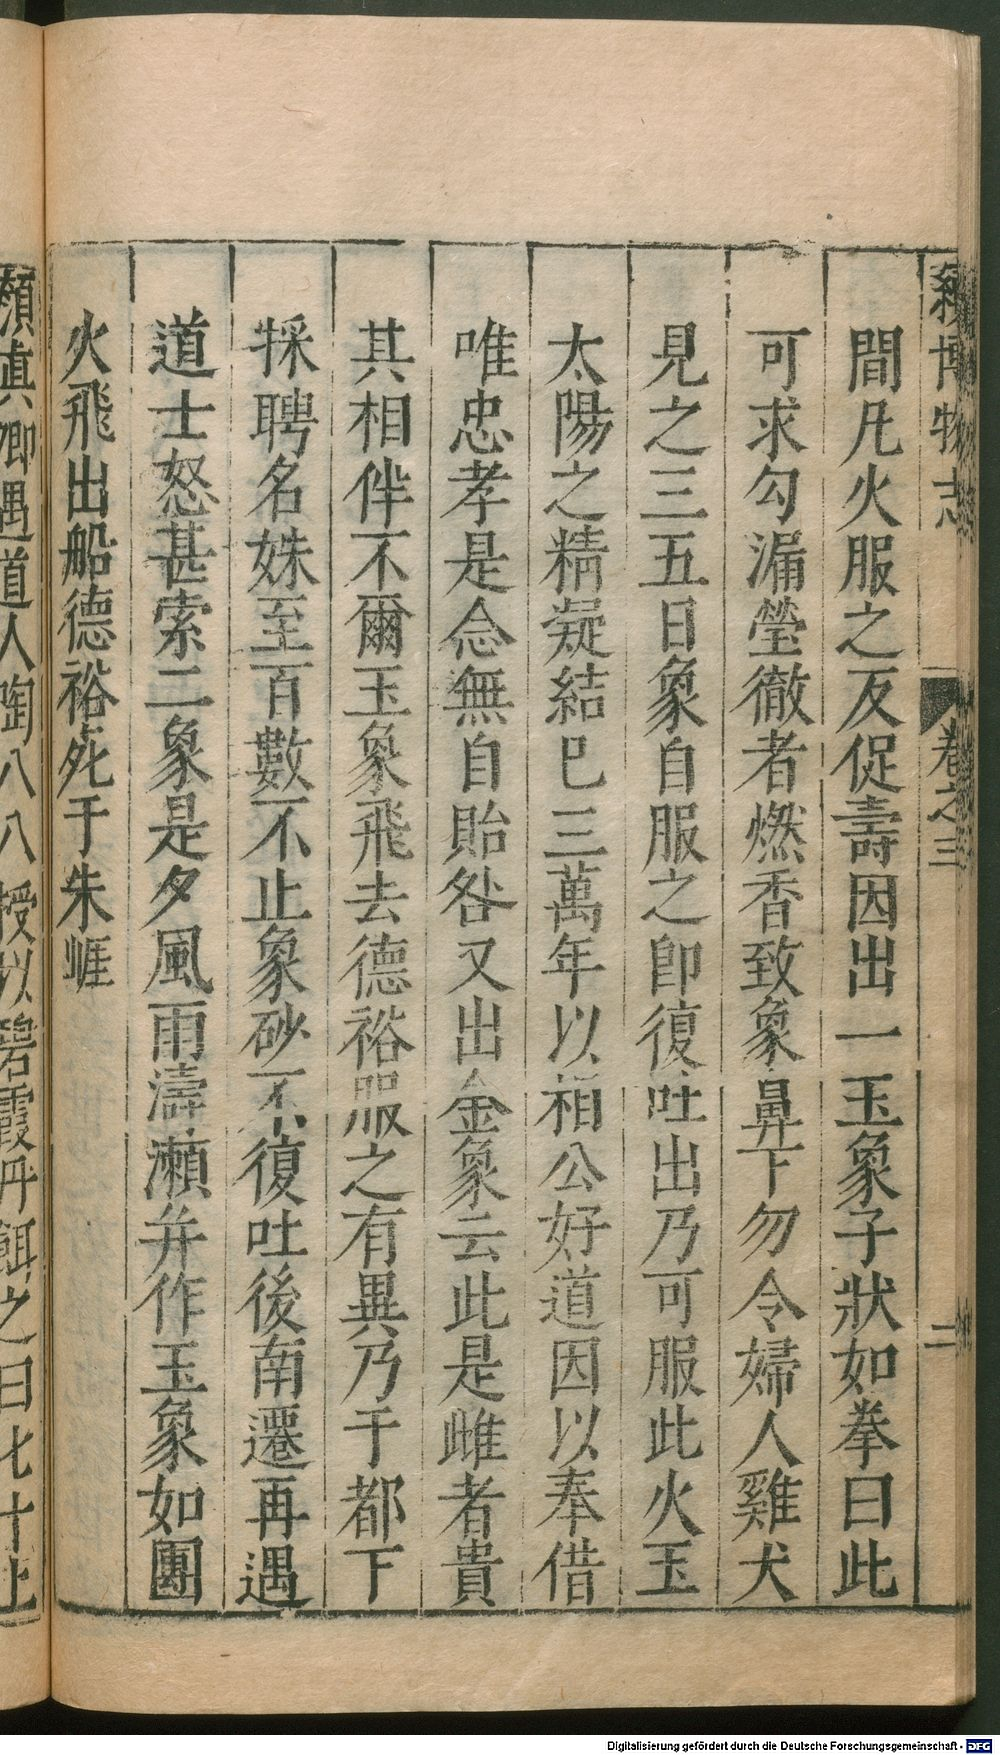 續博物志 卷之三 二
間凡火服之反促壽因出一玉象子狀如拳曰此
可求勾漏瑩徹者燃香致象鼻下勿令婦人雞犬
見之三五日象自服之卽復吐出乃可服此火玉
太陽之精凝結巳三萬年以相公好道因以奉借
唯忠孝是念無自貽咎又出金象云此是雌者貴
其相伴不爾玉象飛去德裕服之有異乃于都下
採聘名姝至百數不止象砂不復吐後南遷再遇
道士怒甚索二象是夕風雨濤瀬并作玉象如團
火飛出船德裕死于朱崕
顏真卿遇道人陶八八授以碧霞丹餌之曰七十上
Digitalisierung gefördert durch die Deutsche Forschungsgemeinschaft - DFG